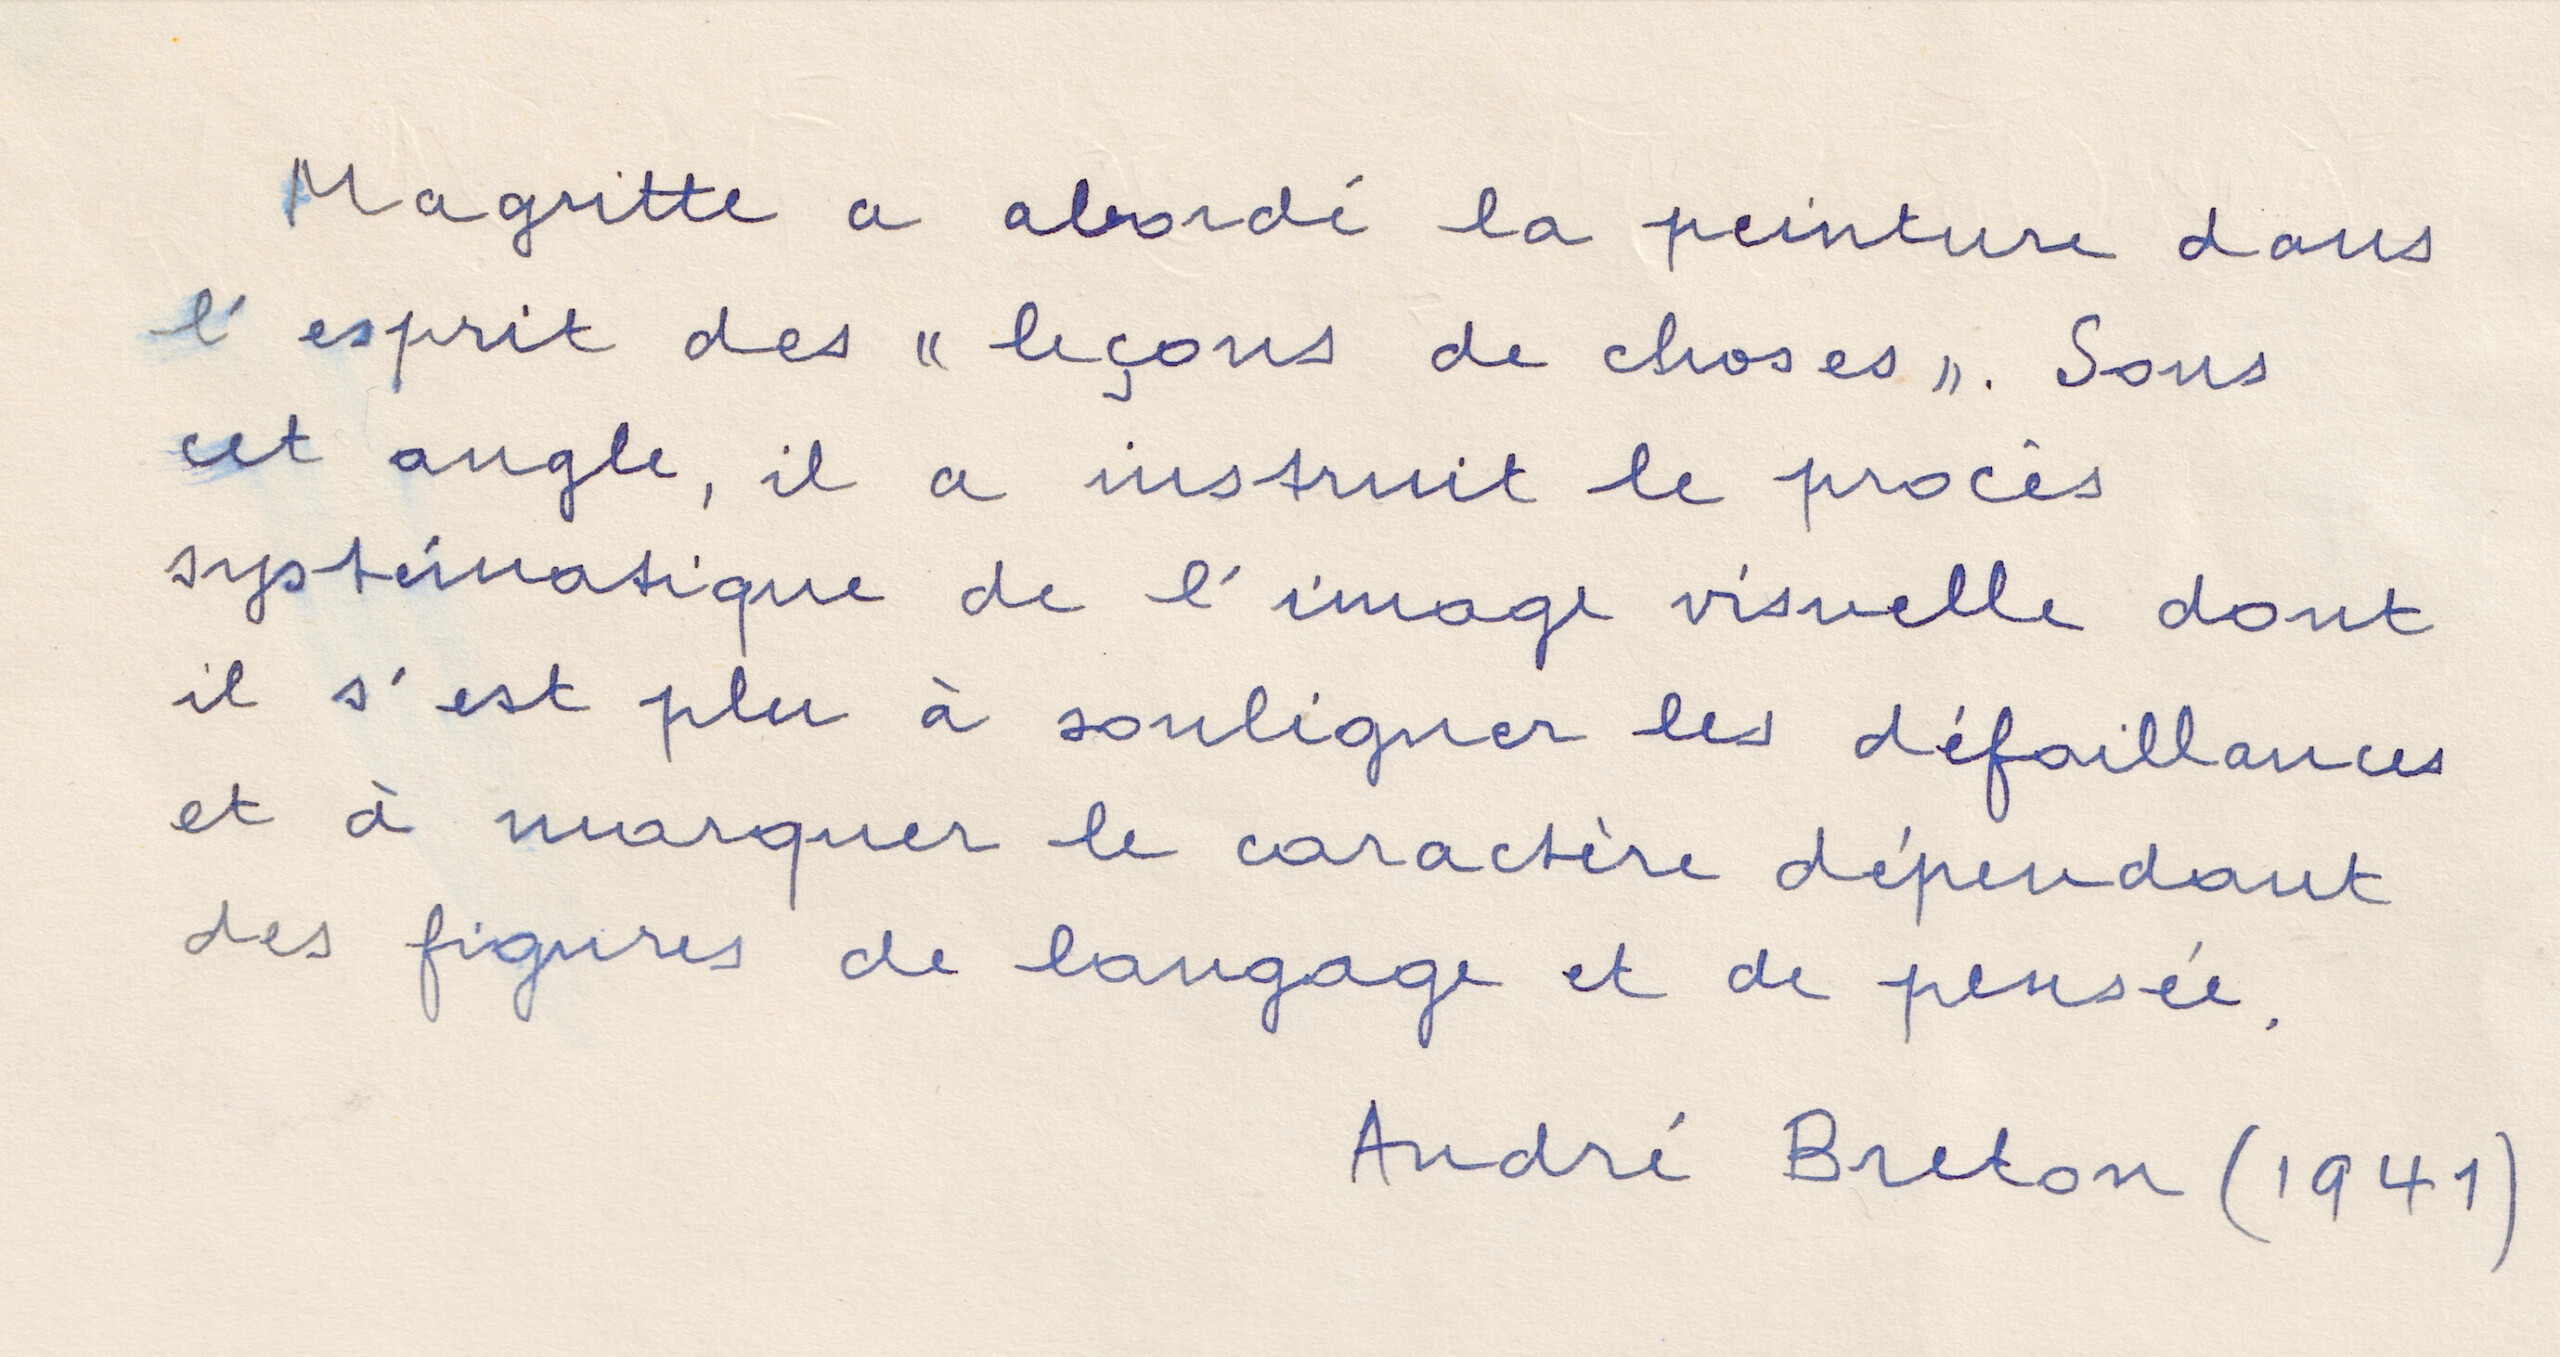 Magritte a abordé la peinture dans
l'esprit des « leçons de choses ». Sous
cet angle, il a instruit le procès
systématique de l'image visuelle dont
il s'est plu à souligner les défaillances
et à marquer le caractère dépendant
des figures de langage et de pensée.
André Breton (1941)